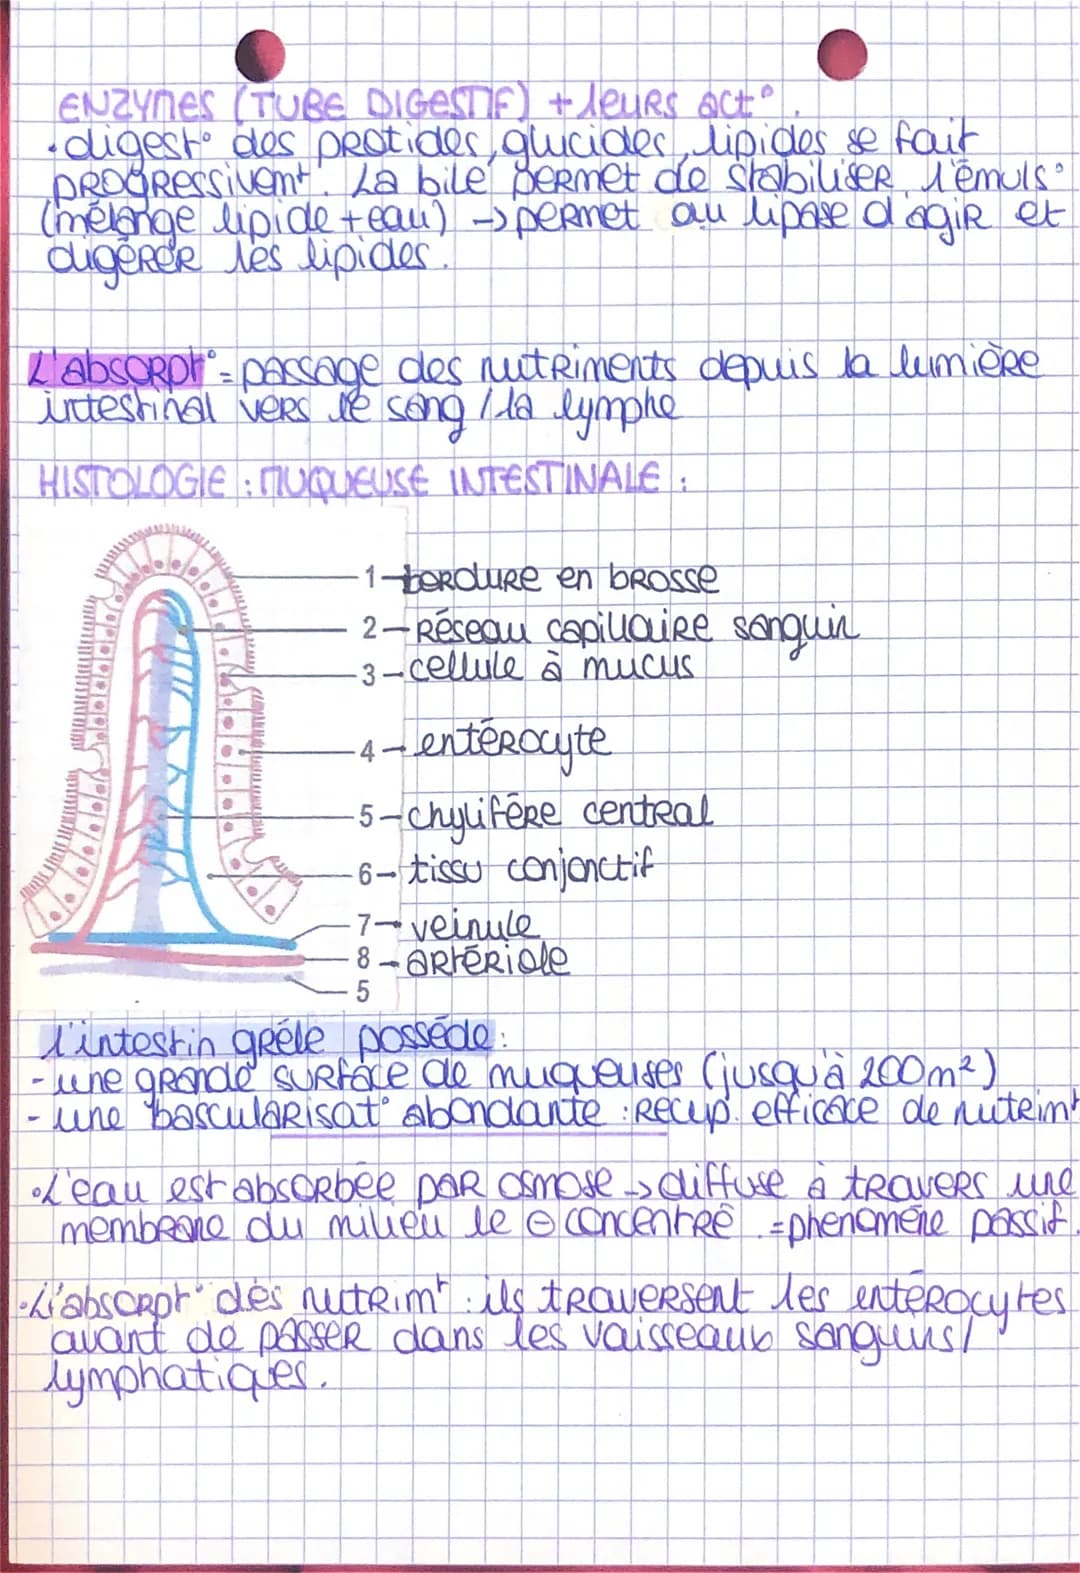 ENZYMES (TUBE DIGESTIF) + leurs act°.
• digest° des protides, glucides, lipides se fait
progressivemt. La bile permet de stabiliser l'émuls°
(mélange lipide + eau) → permet au lipase d'agir et
digérer les lipides.
L'absorpt° = passage des nutriments depuis la lumière
intestinal vers le sang / la lymphe
HISTOLOGIE : MUQUEUSE INTESTINALE :
1 - bordure en brosse
2 - Réseau capillaire sanguin
3 - cellule à mucus
4 - entérocyte
5 - chylifère central
6 - tissu conjonctif
7 - veinule
8 - artériole
5
l'intestin grêle possède :
- une grande surface de muqueuses (jusqu'à 200m²)
- une bascularisat° abondante : récup. efficace de nutrimt
• L'eau est absorbée par osmose → diffuse à travers une
membrane du milieu le ⊖ concentré. = phénomène passif.
• L'absorpt° des nutrimt : ils traversent les entérocytes
avant de passer dans les vaisseaux sanguins/
lymphatiques.